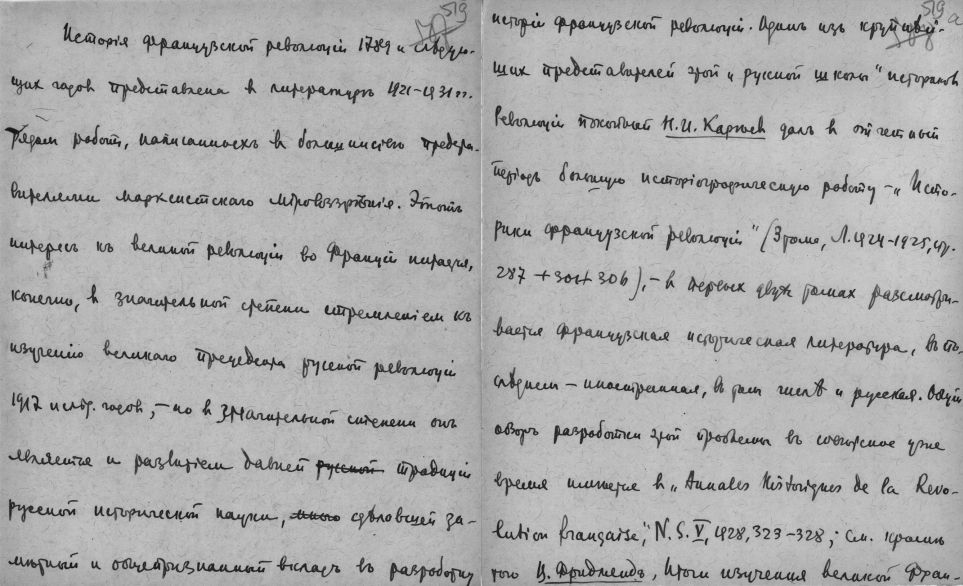 519
Исторія французской революціи 1789 и слѣдую-
щих годов представлена в литературѣ 1921-1931 гг.
рядом работ, написанныхъ в большинствѣ предста-
вителями марксистскаго міровоззрѣнія. Этотъ
интерес къ великой революціи во Франціи питается,
конечно, в значительной степени стремленіем къ
изученію великаго прецедента русской революціи
1917 и слѣд. годов, – но в значительной степени онъ
является и развитіем давней русской традиціи
русской исторической науки, сдѣлавшей за-
мѣтный и общепризнанный вкладъ въ разработку
519 а
исторіи французской революціи. Одинъ изъ крупнѣй-
ших представителей этой „русской школы" историков
Революціи покойный Н.И. Карѣев далъ в отчетный
періодъ большую исторіографическую работу – „Исто-
рики французской революціи" (3 тома, Л. 1924-1925, стр.
287 + 301 + 306), – в первых двух томах разсматри-
вается французская историческая литература, въ по-
слѣднем – иностранная, въ том числѣ и русская. Общій
обзоръ разработки этой проблемы въ совѣтское уже
время имѣется в „Annales Historiques de la Revo-
lution française", N.S. V, 1928, 323-328; см. кромѣ
того Ц. Фридляндъ, Итоги изученія великой Фран-